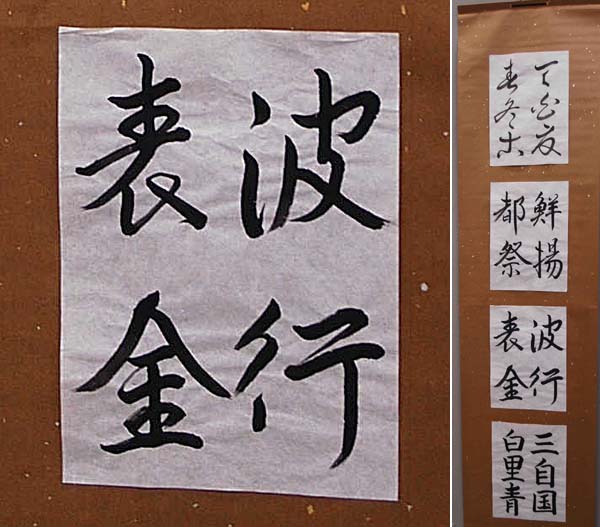 波行
表金
鮮揚
都祭
波行
表金
三自国
白里青